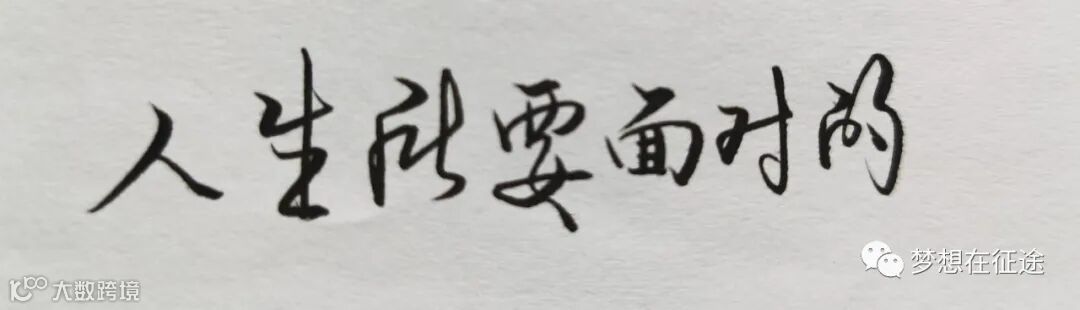 人生所要面对的
梦想在征途
大数跨境